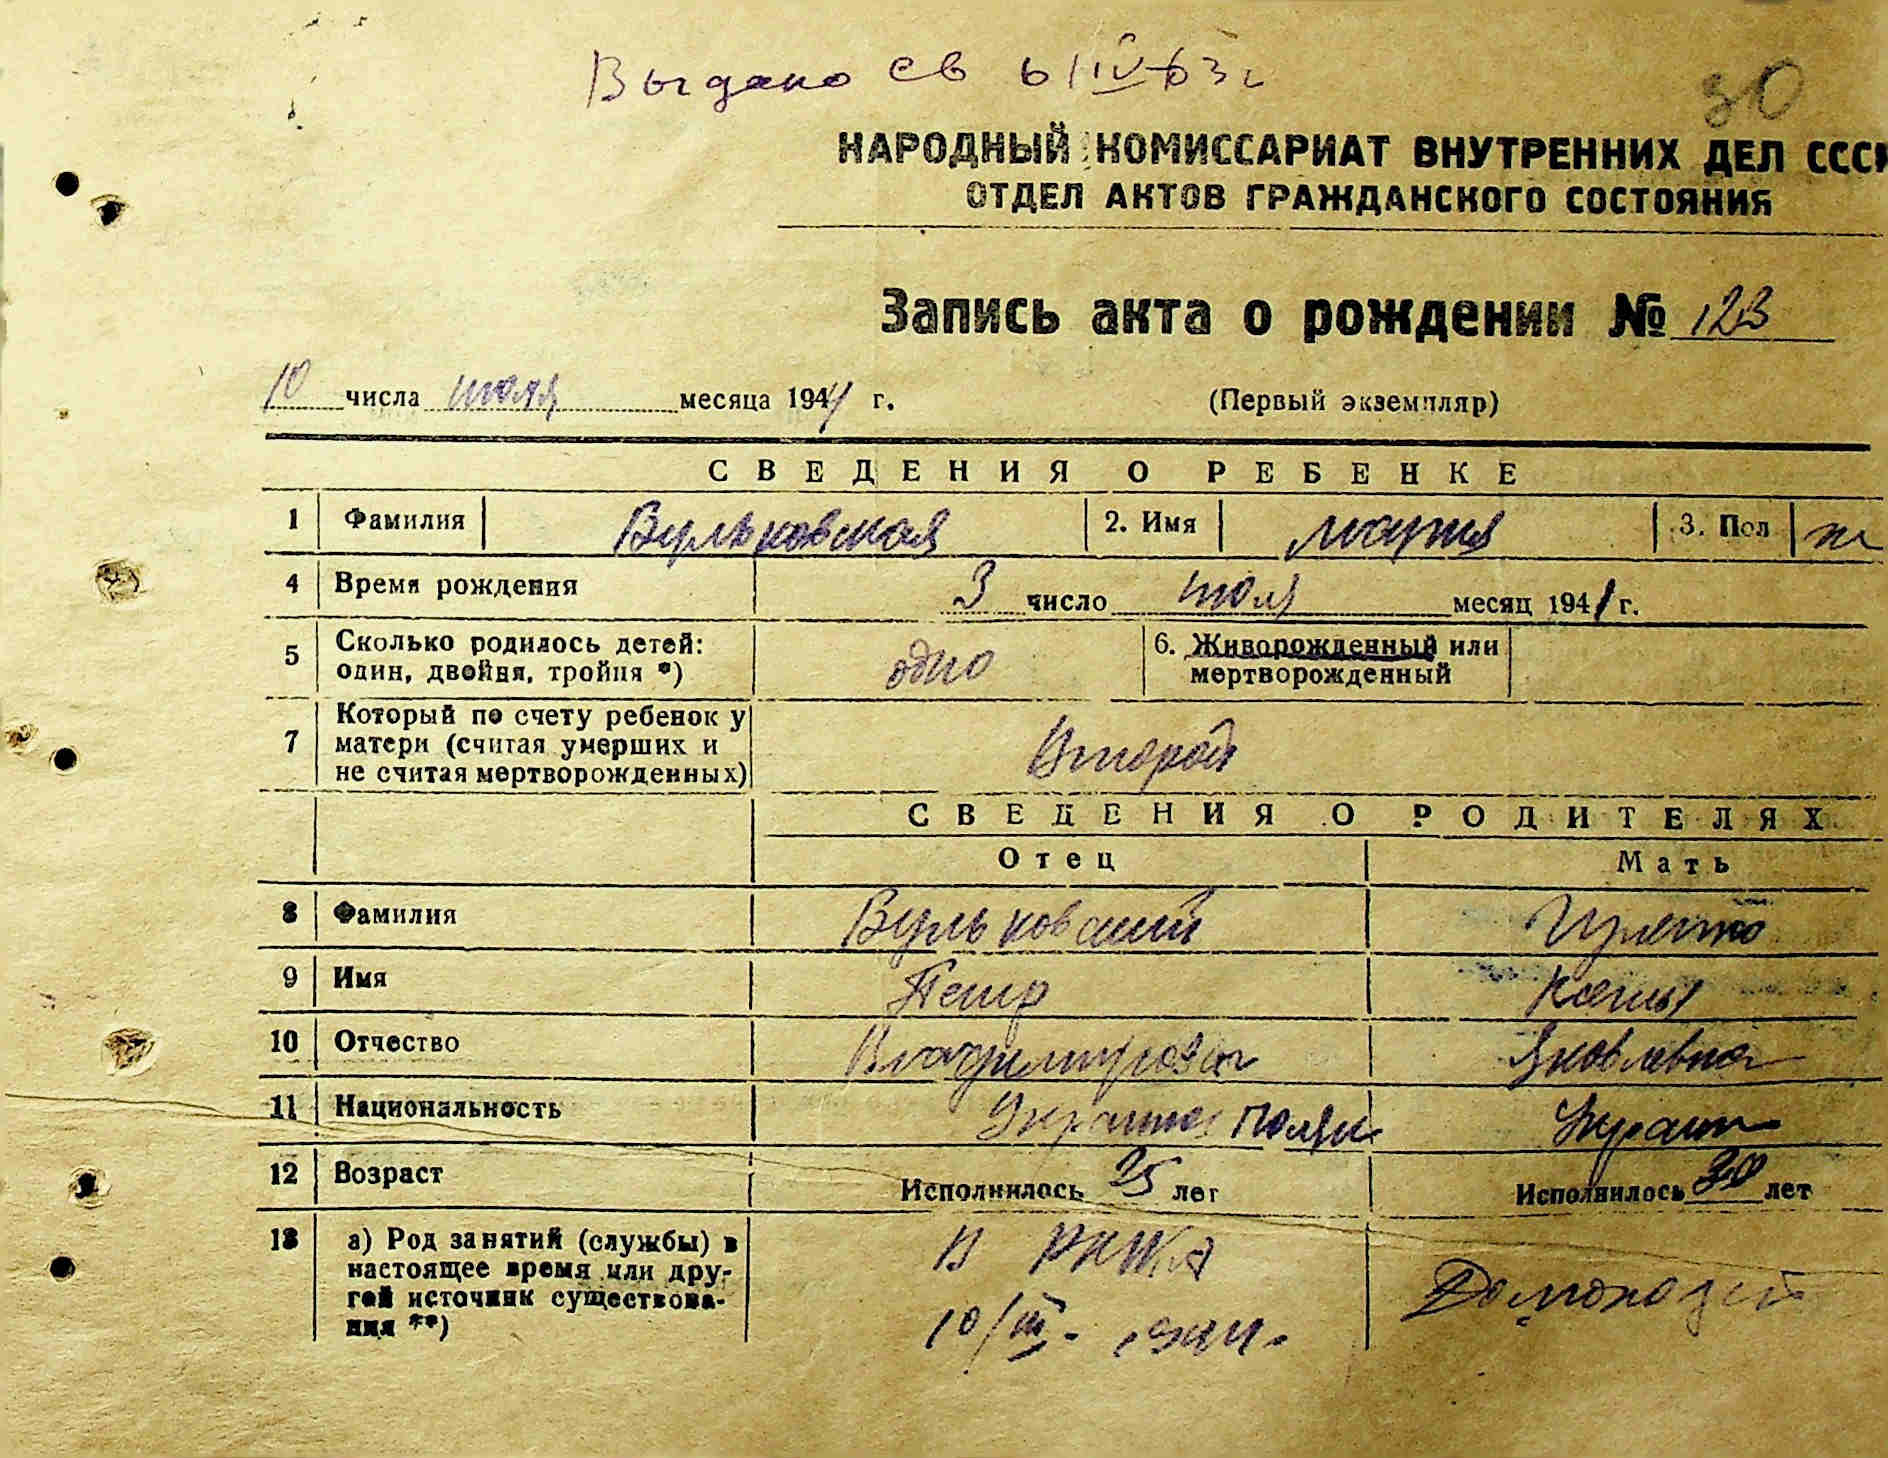 Выдано св 6/IV-63 г
30
НАРОДНЫЙ КОМИССАРИАТ ВНУТРЕННИХ ДЕЛ СССР
ОТДЕЛ АКТОВ ГРАЖДАНСКОГО СОСТОЯНИЯ
Запись акта о рождении № 123
10 числа июля месяца 1944 г. (Первый экземпляр)
СВЕДЕНИЯ О РЕБЕНКЕ
1 Фамилия Вульковская 2. Имя Мария 3. Пол ж
4 Время рождения 3 число июля месяц 1941 г.
5 Сколько родилось детей: один, двойня, тройня *) одно 6. Живорожденный или мертворожденный
7 Который по счету ребенок у матери (считая умерших и не считая мертворожденных) Второй
СВЕДЕНИЯ О РОДИТЕЛЯХ
Отец Мать
8 Фамилия Вульковский
9 Имя Петр
10 Отчество Владимирович Яковлевна
11 Национальность Поляк Украин
12 Возраст Исполнилось 35 лет Исполнилось 30 лет
13 а) Род занятий (службы) в настоящее время или другой источник существования **) В РККА Домохозяй
10/III. 1944.